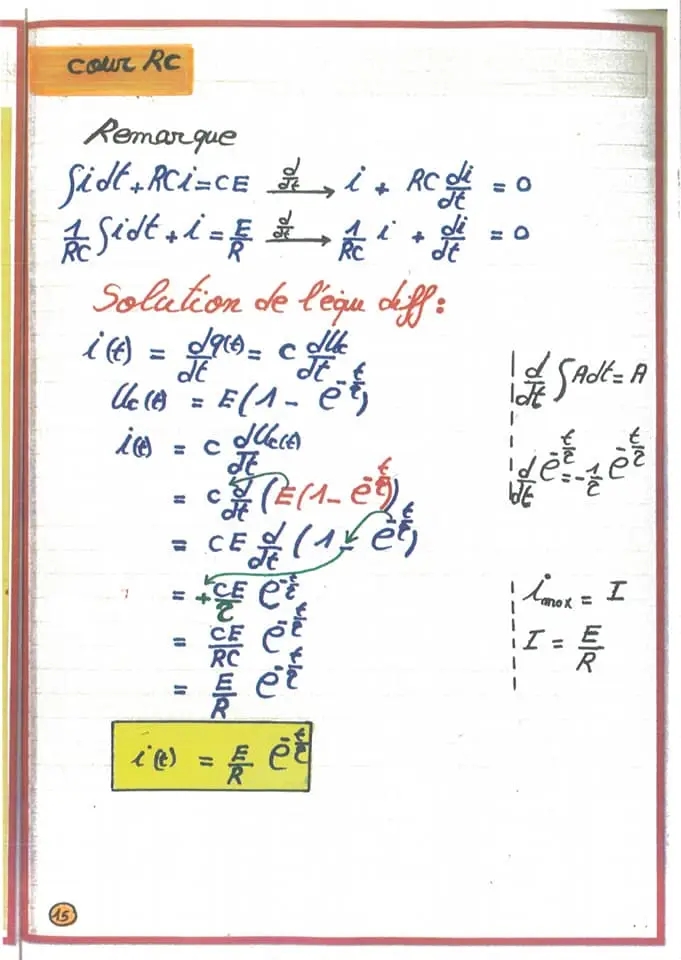 cour RC
Remarque
∫idt + RCi = CE d/dt → i + RC di/dt = 0
1/RC ∫idt + i = E/R d/dt → 1/RC i + di/dt = 0
Solution de l'équ diff :
i(t) = dq(t)/dt = C dUc/dt
Uc(t) = E(1 - e^-t/τ)
i(t) = C dUc(t)/dt
= C d/dt (E(1 - e^-t/τ))
= CE d/dt (1 - e^-t/τ)
= + CE/τ e^-t/τ
= CE/RC e^-t/τ
= E/R e^-t/τ
i(t) = E/R e^-t/τ
d/dt ∫Adt = A
d/dt e^-t/τ = -1/τ e^-t/τ
imax = I
I = E/R
15